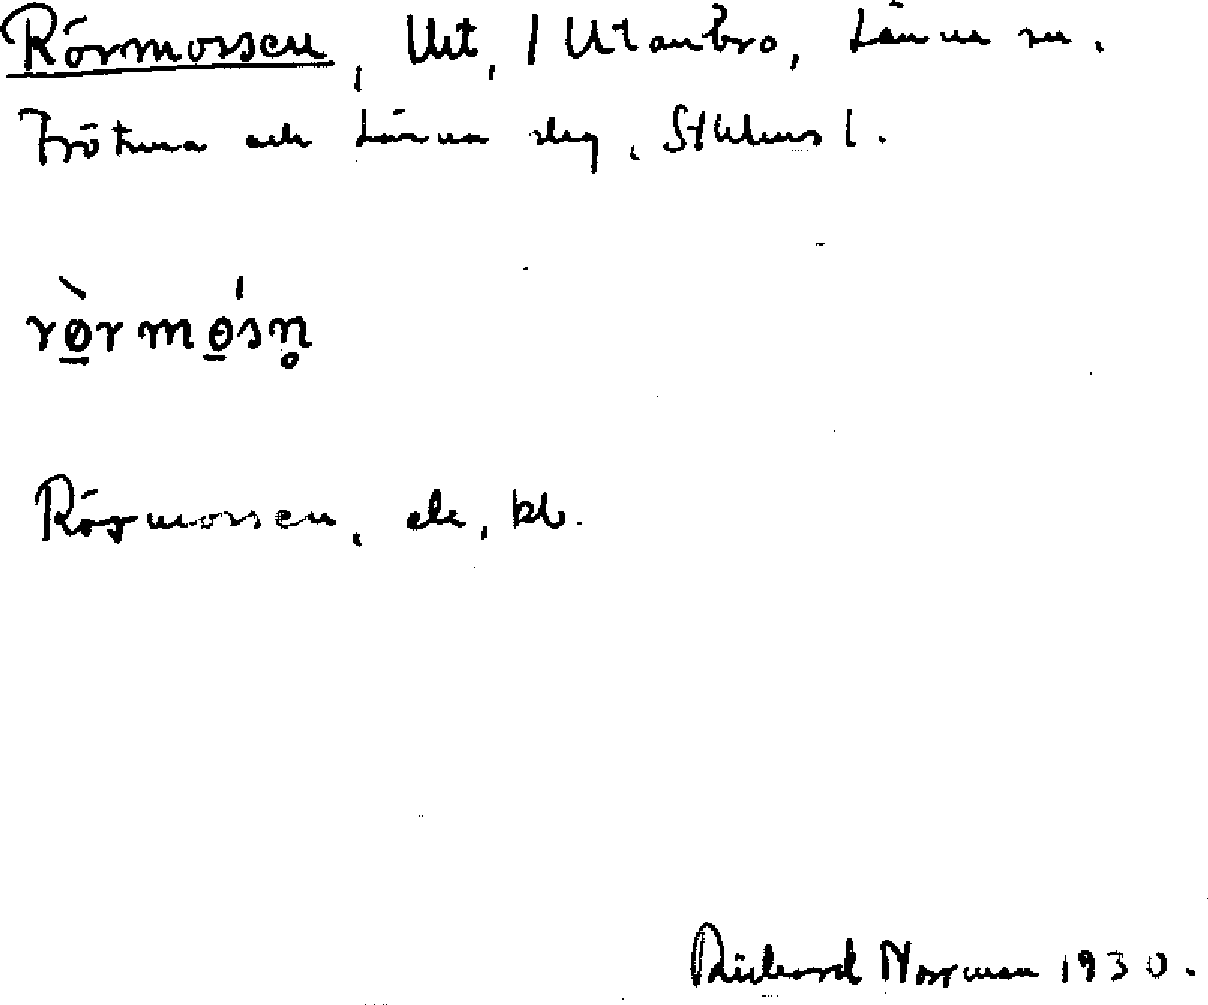 Rörmossen, Urt, / Utanbro, Länna sn.
Frötuna och Länna slg, Sthlms l.
rø̀rmǿsn̥
Rörmossen, ek, kb.
Richard Norrman 1930.